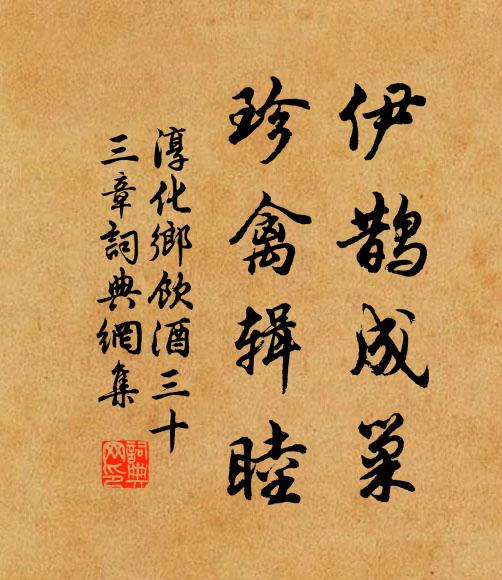 伊鹊成巢
珍禽辑睦
淳化鄉飲酒三十
三章詞典網集
詞典网印